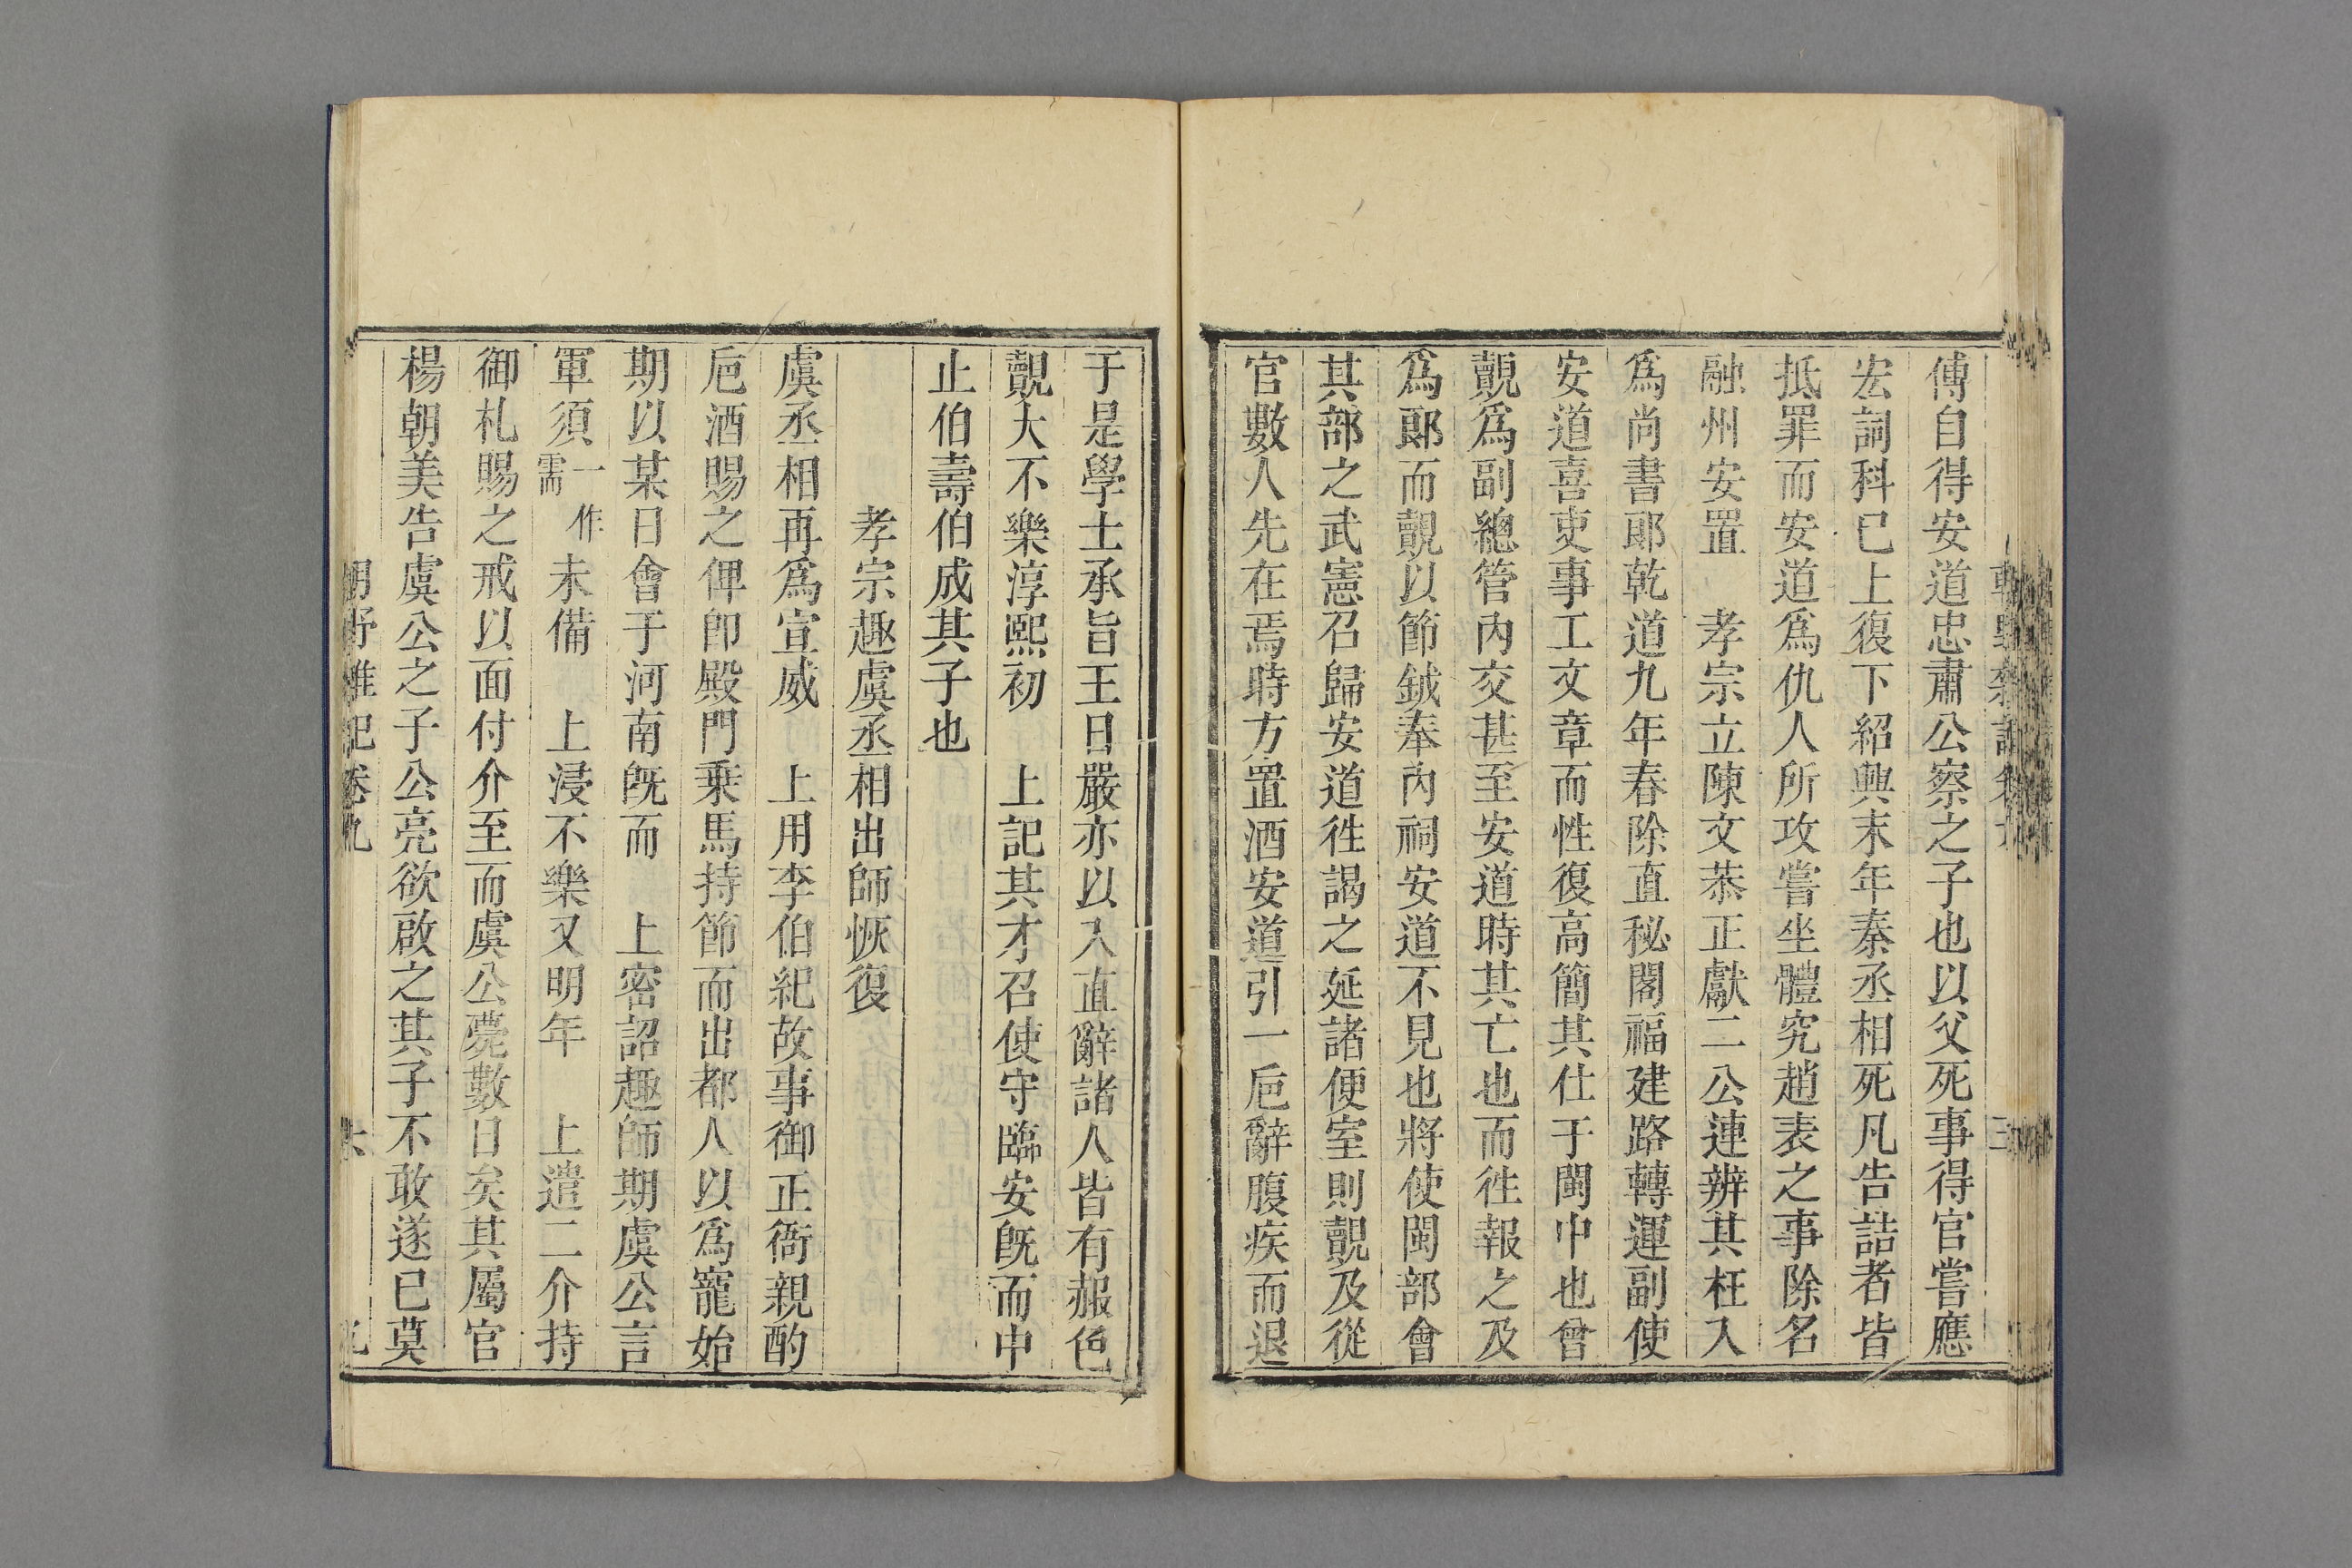 傅自得安道忠肅公察之子也以父死事得官嘗應
宏詞科已上復下紹興末年秦丞相死凡告詰者皆
抵罪而安道爲仇人所攻嘗坐體究趙表之事除名
融州安置　孝宗立陳文恭正獻二公連辨其枉入
爲尚書郎乾道九年春除直秘閣福建路轉運副使
安道喜吏事工文章而性復高簡其仕于閩中也曾
覿爲副總管內交甚至安道時其亡也而徃報之及
爲郎而覿以節鉞奉內祠安道不見也將使閩部會
其部之武憲召歸安道徃謁之延諸便室則覿及從
官數人先在焉時方置酒安道引一巵辭腹疾而退
于是學士承旨王日嚴亦以入直辭諸人皆有赧色
覿大不樂淳熙初　上記其才召使守臨安旣而中
止伯壽伯成其子也
孝宗趣虞丞相出師恢復
虞丞相再爲宣威　上用李伯紀故事御正衙親酌
巵酒賜之俾卽殿門乗馬持節而出都人以爲寵始
期以某日會于河南旣而　上密詔趣師期虞公言
軍須一作需未備　上浸不樂又明年　上遣二介持
御札賜之戒以面付介至而虞公薨數日矣其屬官
楊朝美告虞公之子公亮欲啟之其子不敢遂已莫
朝野雜記卷九